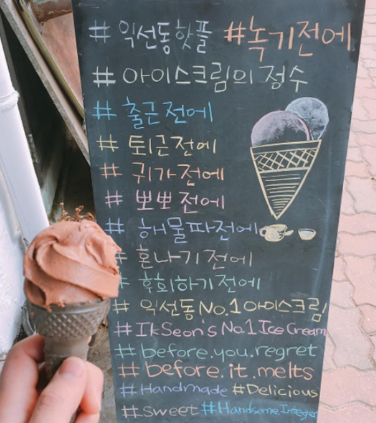 #익선동핫플 #녹기전에
#아이스크림의정수
#출근전에
#퇴근전에
#귀가전에
#뽀뽀전에
#해물파전에
#혼나기전에
#후회하기전에
#익선동No.1아이스크림
#IkSeon's No.1 Ice Cream
#before.you.regret
#before.it.melts
#Handmade #Delicious
#Sweet